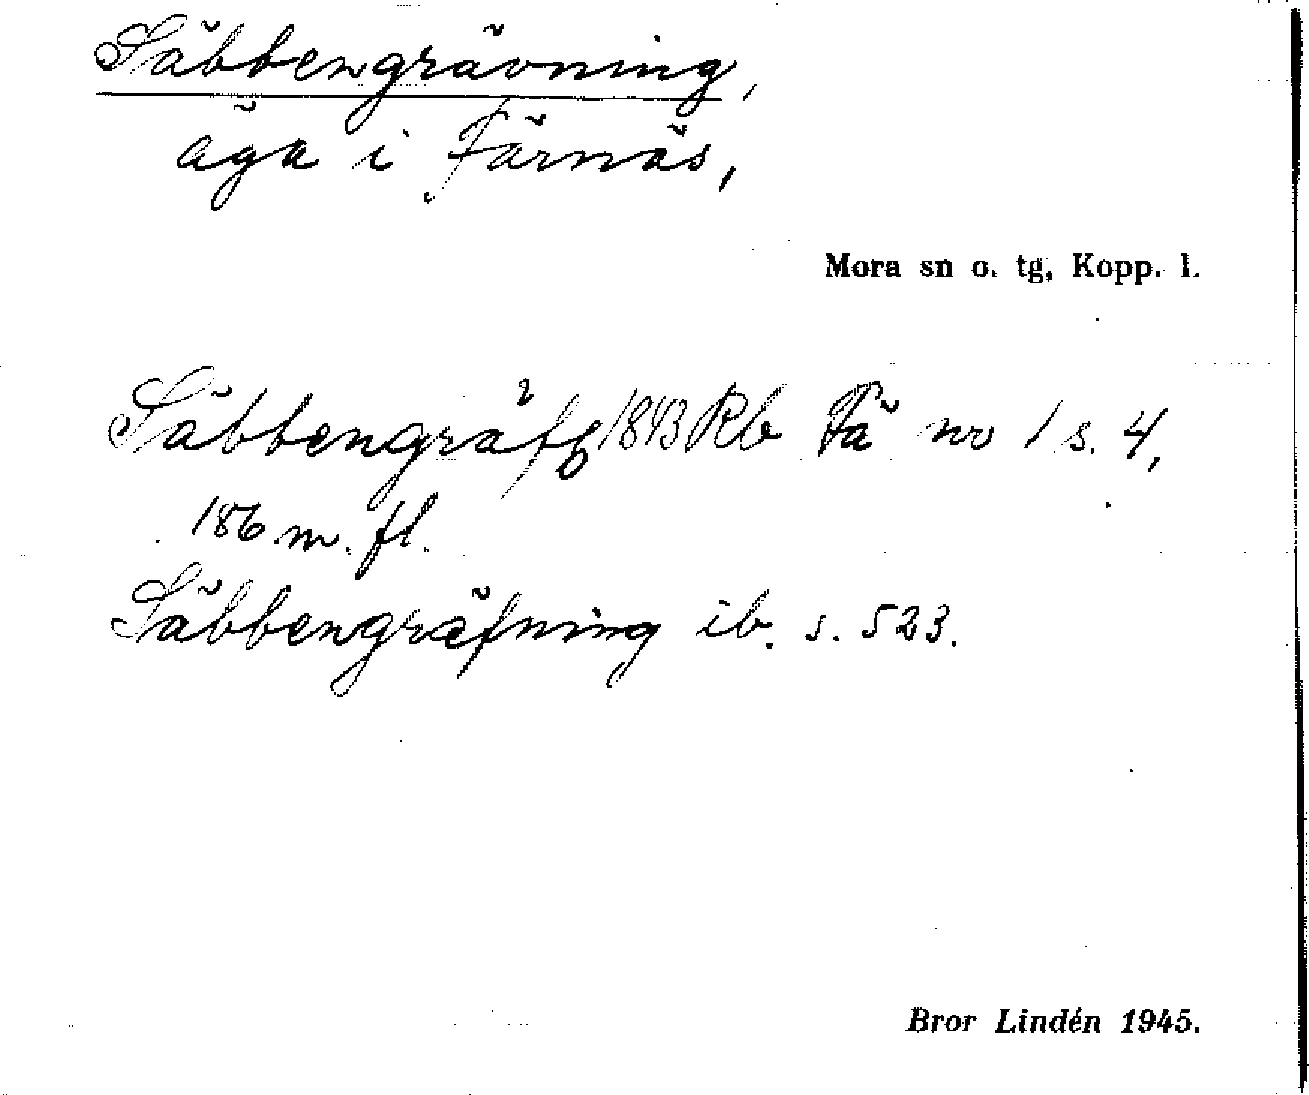 Säbbengrävning,
äga i Färnäs,
Mora sn o. tg, Kopp. l.
Säbbengräfg 1843 Rb Fä nr 1 s. 4,
186 m. fl.
Säbbengräfning ib. s. 523.
Bror Lindén 1945.